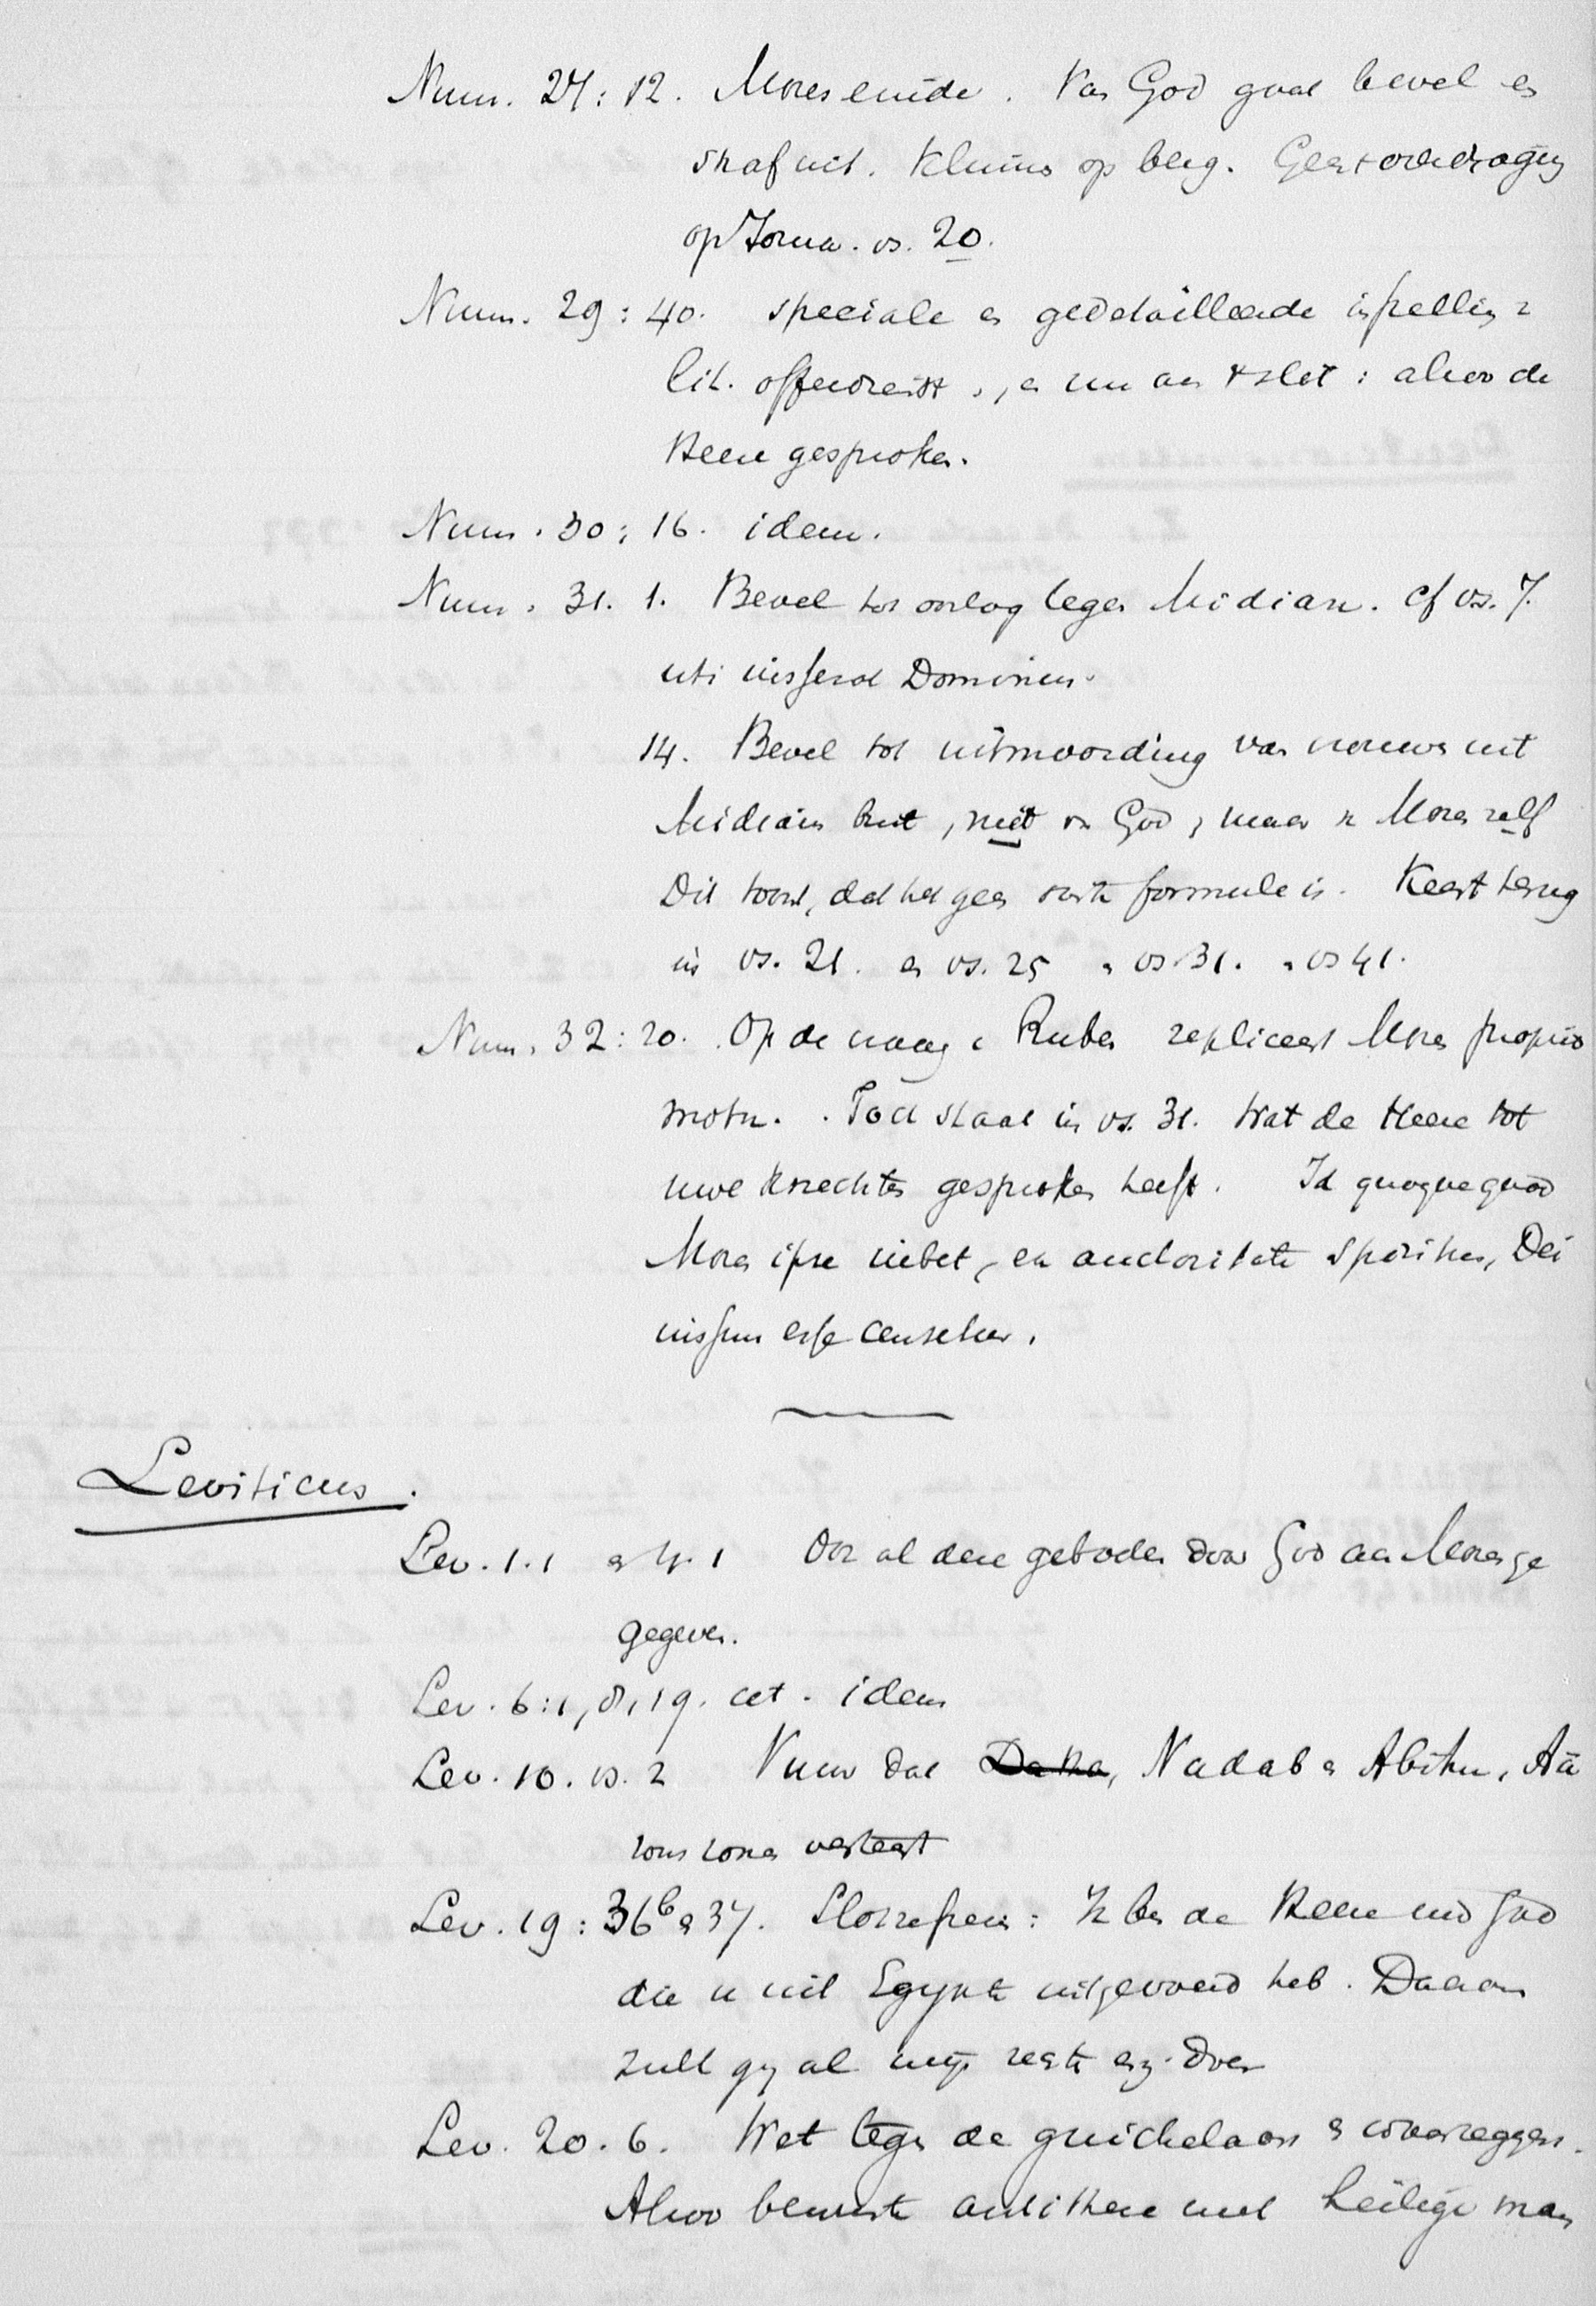 Num. 27:12. Mozes einde. Van God gaat bevel en
straf uit. Klimme op berg. Geest overdragen
op Jozua. vs. 20.
Num. 29:40. speciale en gedetailleerde instelling v
lit. offerdienst, en nu aan 't slot: alzoo de
Heere gesproken.
Num. 30:16. idem.
Num. 31.1. Bevel tot oorlog tegen Midian. cf vs. 7.
uti iusserat Dominus.
14. Bevel tot uitmoording van vrouwen uit
Midians buit, niet van God, maar v Mozes zelf
Dit toont, dat het geen vaste formule is. Keert terug
in vs. 21. en vs. 25 " vs 31. " vs 41.
Num. 32:20. Op de vraag v Ruben repliceert Mozes proprio
motu. Toch staat in vs. 31. Wat de Heere tot
uwe knechten gesproken heeft. Id quoque quod
Mozes ipse iubet, ex auctoritate Spiritus, Dei
iussum esse censetur.
Leviticus.
Lev. 1.1 en 4.1 Ook al deze geboden door God aan Mozes ge
gegeven.
Lev. 6:1, 8, 19. cet. idem
Lev. 10. vs. 2 Vuur dat Nadab en Abihu, Aä
rons zonen verteert
Lev. 19:36b en 37. Slotrefrein: Ik ben de Heere uw God
die u uit Egypte uitgevoerd heb. Daarom
zult gij al mijn rechten enz. doen
Lev. 20.6. Wet tegen de guichelaars en waarzeggers.
Alzoo bewuste antithese met heilige man